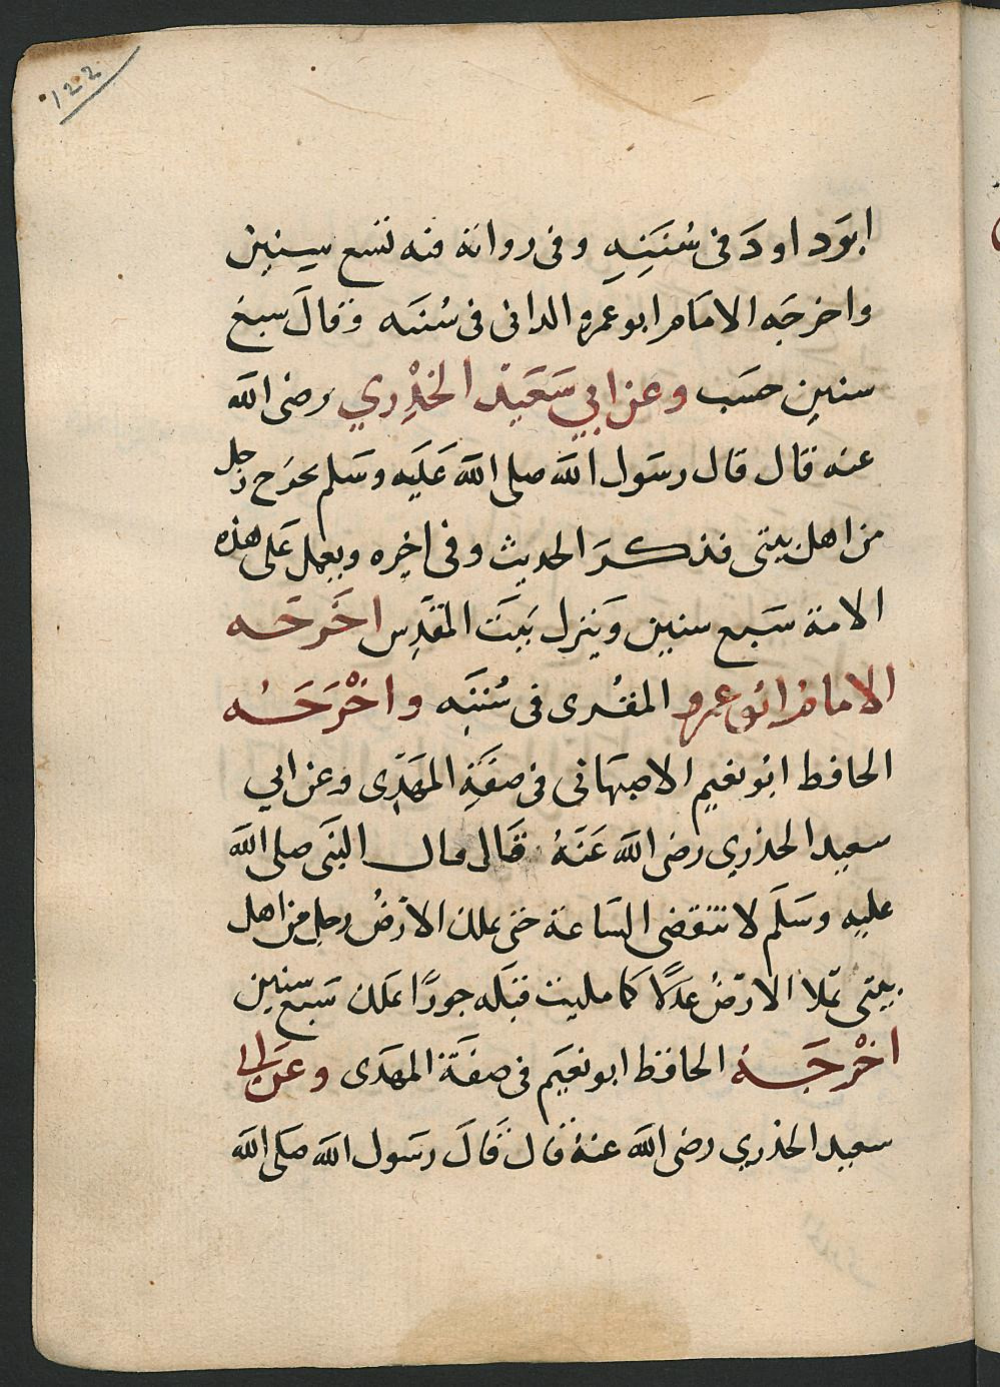 ١٢٢
ابوَداودَ فى سُنَنِهِ وفى رواية فيه تسع سِنِين
واخرجَه الامَام ابو عمرو الدانى فى سُننَه وَقالَ سبع
سنين حسَب وعن ابي سَعَيد الخدْرِي رضى الله
عنه قال قال رسَول الله صلى الله عَليَه وسَلم يخرَج رَجل
من اهل بيتى فذكرَ الحديث وفى اخِره ويعمل عَلى هذه
الامة سَبع سنين وَينزل بَيَت المقَدِس اخَرجَه
الامام ابو عمرو المقرى فى سُننَه واخْرَجَهُ
الحافظ ابو نعيم الاصبهَانى فى صفَةِ المهَدِى وعن ابي
سعيد الخدري رضى الله عَنَهُ قال قال النبَى صلى الله
عليه وسَلَم لا تنقضى السَاعة حتى يملك الارَضُ رجل من اهل
بيتى يملا الارَضُ عَدلًا كما مليت قبَله جورًا يملك سَبع سنين
اخْرجَهُ الحافظ ابو نعيَم فى صفَة المهدَى وعَن ابي
سعيد الخدري رضى الله عنهُ قال قالَ رسَول الله صَلى الله